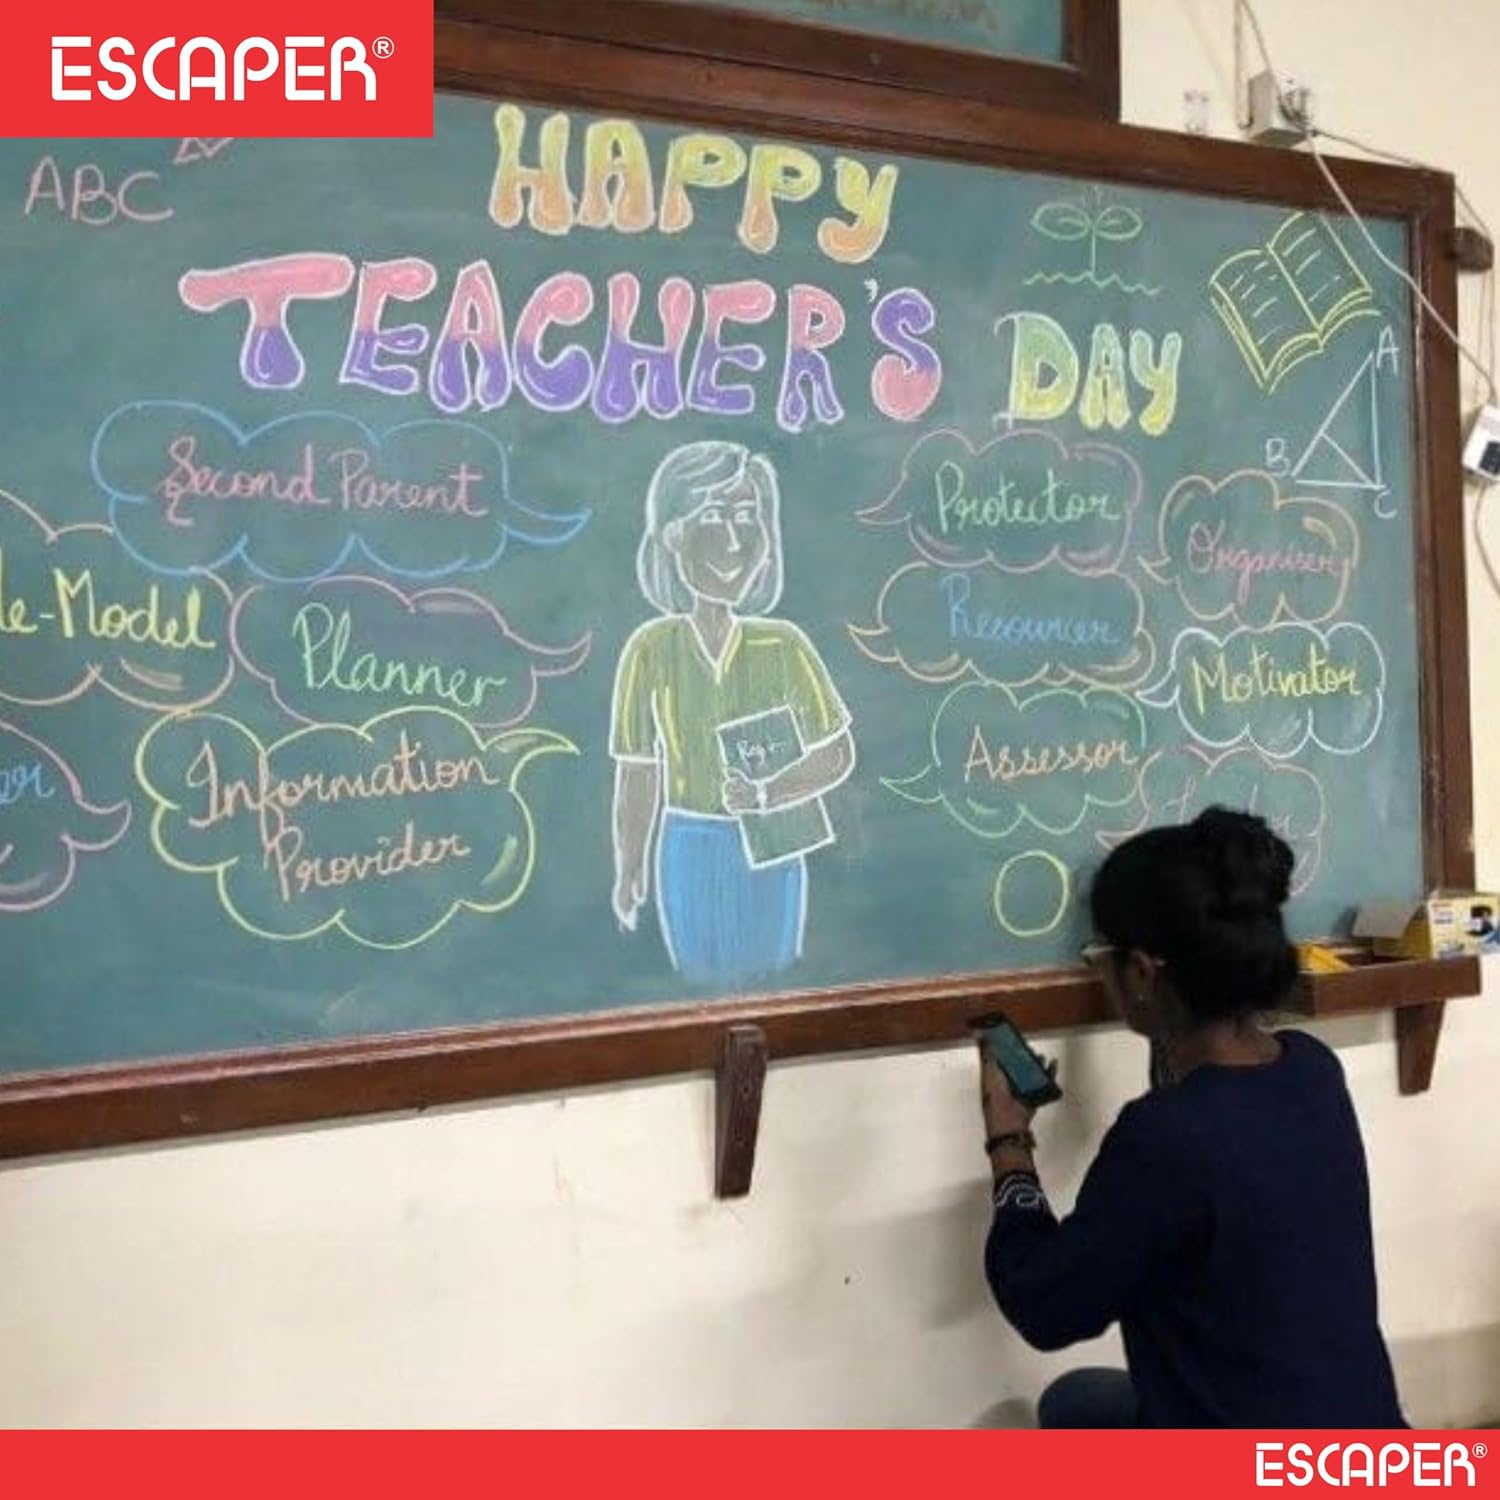 ESCAPER®
ABC
HAPPY
TEACHER'S DAY
A
B
C
Second Parent
Protector
Organiser
le-Model
Planner
Resourcer
Motivator
Information
Provider
Assessor
ESCAPER®